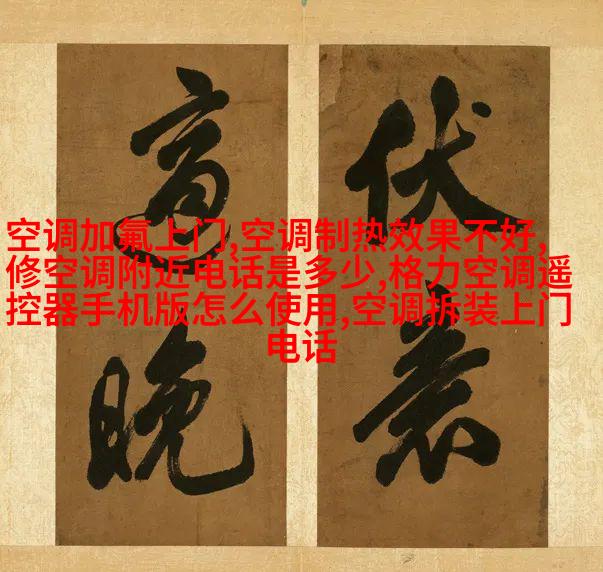 空调加氟上门,空调制热效果不好,
修空调附近电话是多少,格力空调遥
控器手机版怎么使用,空调拆装上门
电话
伏
晚